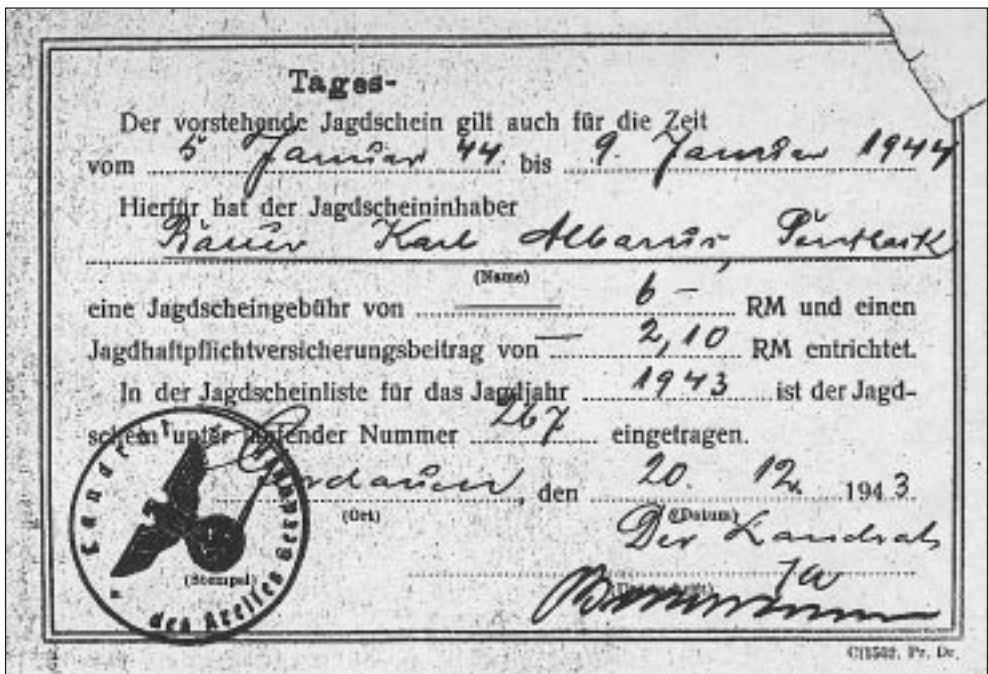 Tages-
Der vorstehende Jagdschein gilt auch für die Zeit
vom 5 Januar 44. bis 9. Januar 1944
Hierfür hat der Jagdscheininhaber
Karl Albarus,
(Name)
eine Jagdscheingebühr von 6 - RM und einen
Jagdhaftpflichtversicherungsbeitrag von - 2,10 RM entrichtet.
In der Jagdscheinliste für das Jagdjahr 1943 ist der Jagd-
schein unter laufender Nummer 267 eingetragen.
Gerdauen, den 20. 12. 1943
(Ort) (Datum)
Der Landrat
(Stempel)
Landrat des Kreises